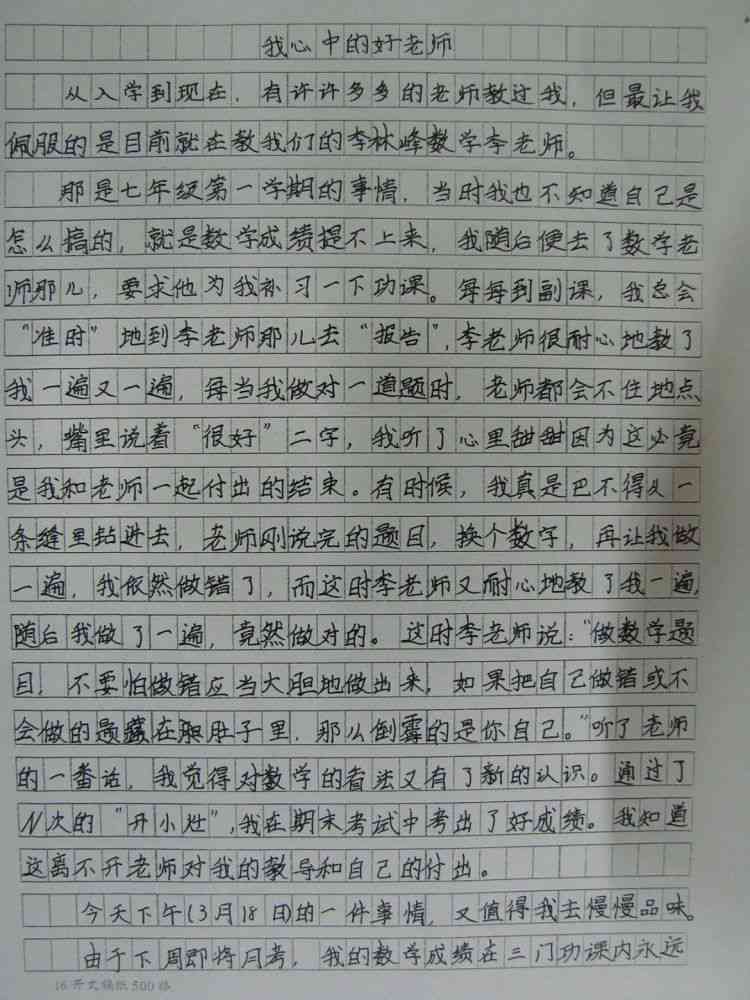 我心中的好老师
从入学到现在，有许许多多的老师教过我，但最让我
佩服的是目前就在教我们的李林峰数学李老师。
那是七年级第一学期的事情，当时我也不知道自己是
怎么搞的，就是数学成绩提不上来，我随后便去了数学老
师那儿，要求他为我补习一下功课。每每到副课，我总会
“准时”地到李老师那儿去“报告”，李老师很耐心地教了
我一遍又一遍，每当我做对一道题时，老师都会不住地点
头，嘴里说着“很好”二字，我听了心里甜甜因为这必竟
是我和老师一起付出的结束。有时候，我真是巴不得从一
条缝里钻进去，老师刚说完的题目，换个数字，再让我做
一遍，我依然做错了，而这时李老师又耐心地教了我一遍，
随后我做了一遍，竟然做对的。这时李老师说：“做数学题
目！不要怕做错应当大胆地做出来，如果把自己做错或不
会做的题藏在肚子里，那么倒霉的是你自己。”听了老师
的一番话，我觉得对数学的看法又有了新的认识。通过了
N次的“开小灶”，我在期末考试中考出了好成绩。我知道
这离不开老师对我的教导和自己的付出。
今天下午(3月18日)的一件事情，又值得我去慢慢品味。
由于下周即将月考，我的数学成绩在三门功课内永远
16开文稿纸500格